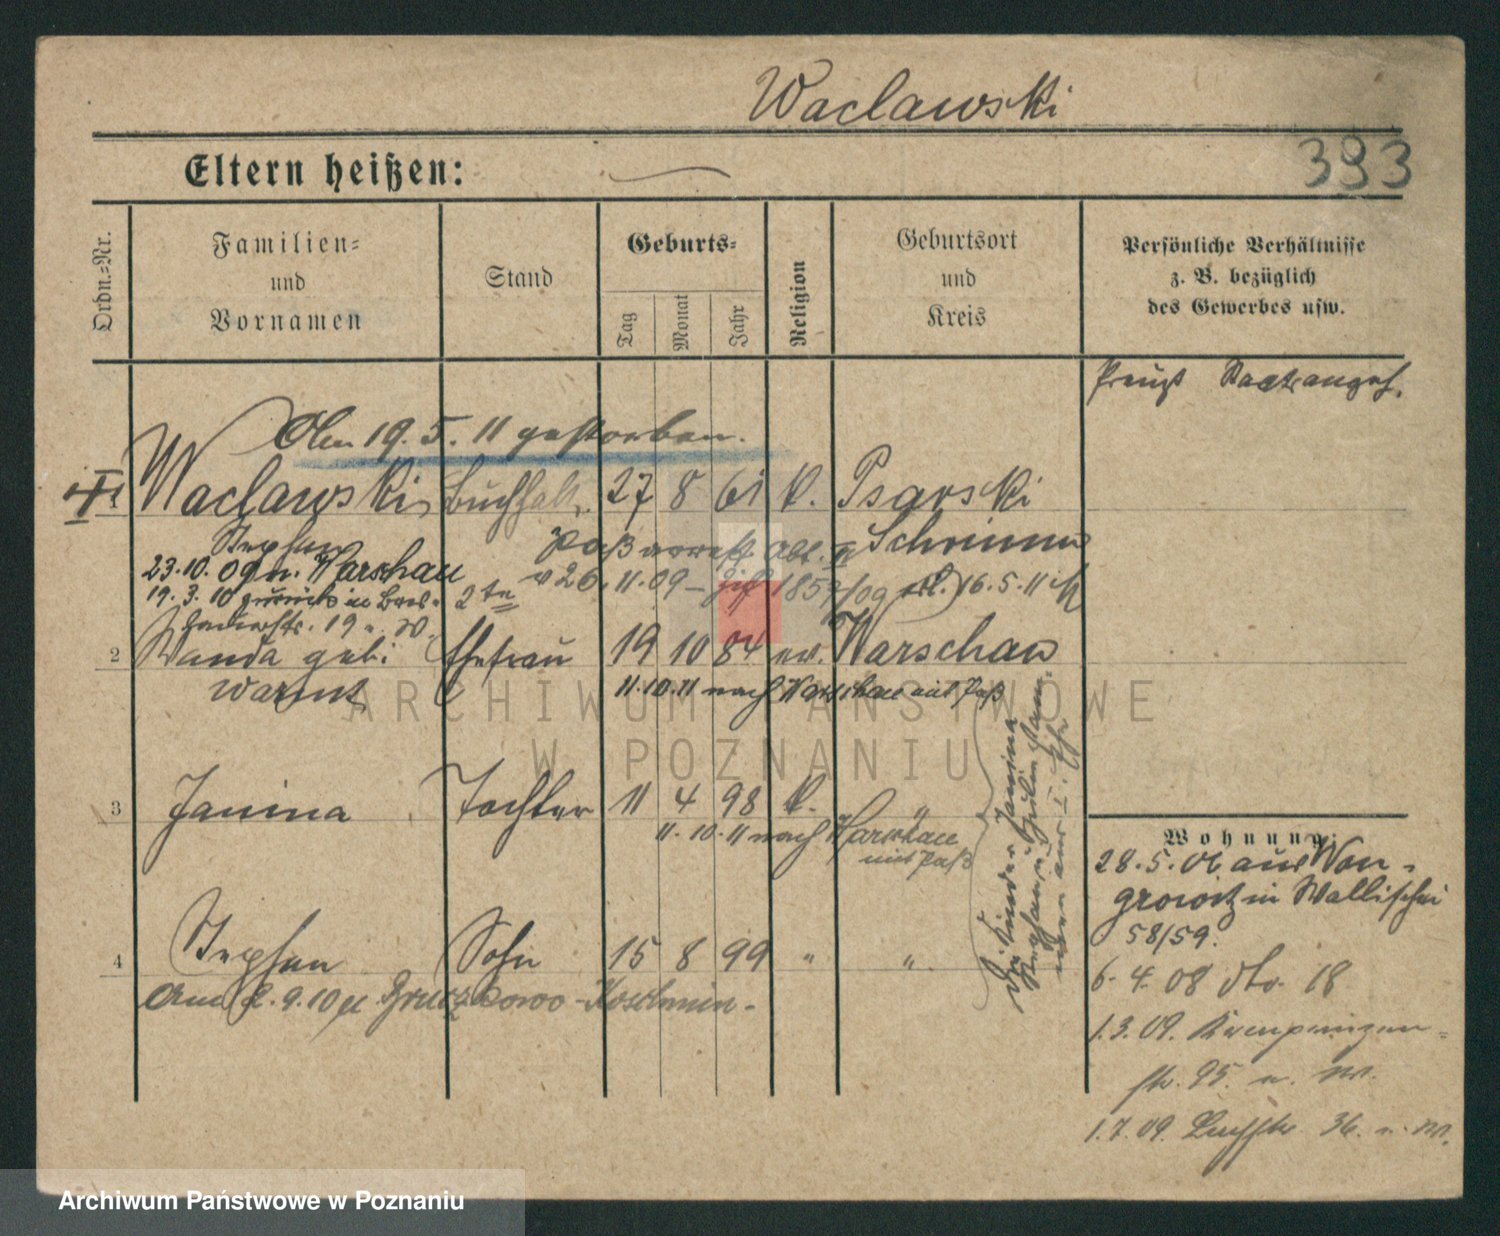 Waclawski
Eltern heißen: —
393
Ordn.=Nr.
Familien=
und
Vornamen
Stand
Geburts=
Tag
Monat
Jahr
Religion
Geburtsort
und
Kreis
Persönliche Verhältnisse
z. B. bezüglich
des Gewerbes usw.
Preuß Staatsangeh.
Am 19. 5. 11 gestorben.
1 Waclawski Buchhalt. 27 8 61 k. Psarski
Stephan Schrimm
23.10.09 n. Warschau
Paß Abt. II
v 26.11.09 16.5.11
19.3.10 zurück in
19 u. W.
2 Wanda geb. Ehefrau 19 10 84 ev. Warschau
11.10.11 nach Warschau mit Paß
3 Janina Tochter 11 4 98 k. "
11.10.11 nach Warschau
mit Paß
4 Stephan Sohn 15 8 99 " "
Am 2.9.10 Koschmin-
Die Kinder Janina
Stephan u.
aus I. Ehe
Wohnung:
28.5.06 aus Won-
growitz in Wallischei
58/59.
6.4.08 dto. 18
1.3.09. Kronprinzen-
str. 95 u. W.
1.7.09. 36. u. W.
ARCHIWUM PAŃSTWOWE
W POZNANIU
Archiwum Państwowe w Poznaniu